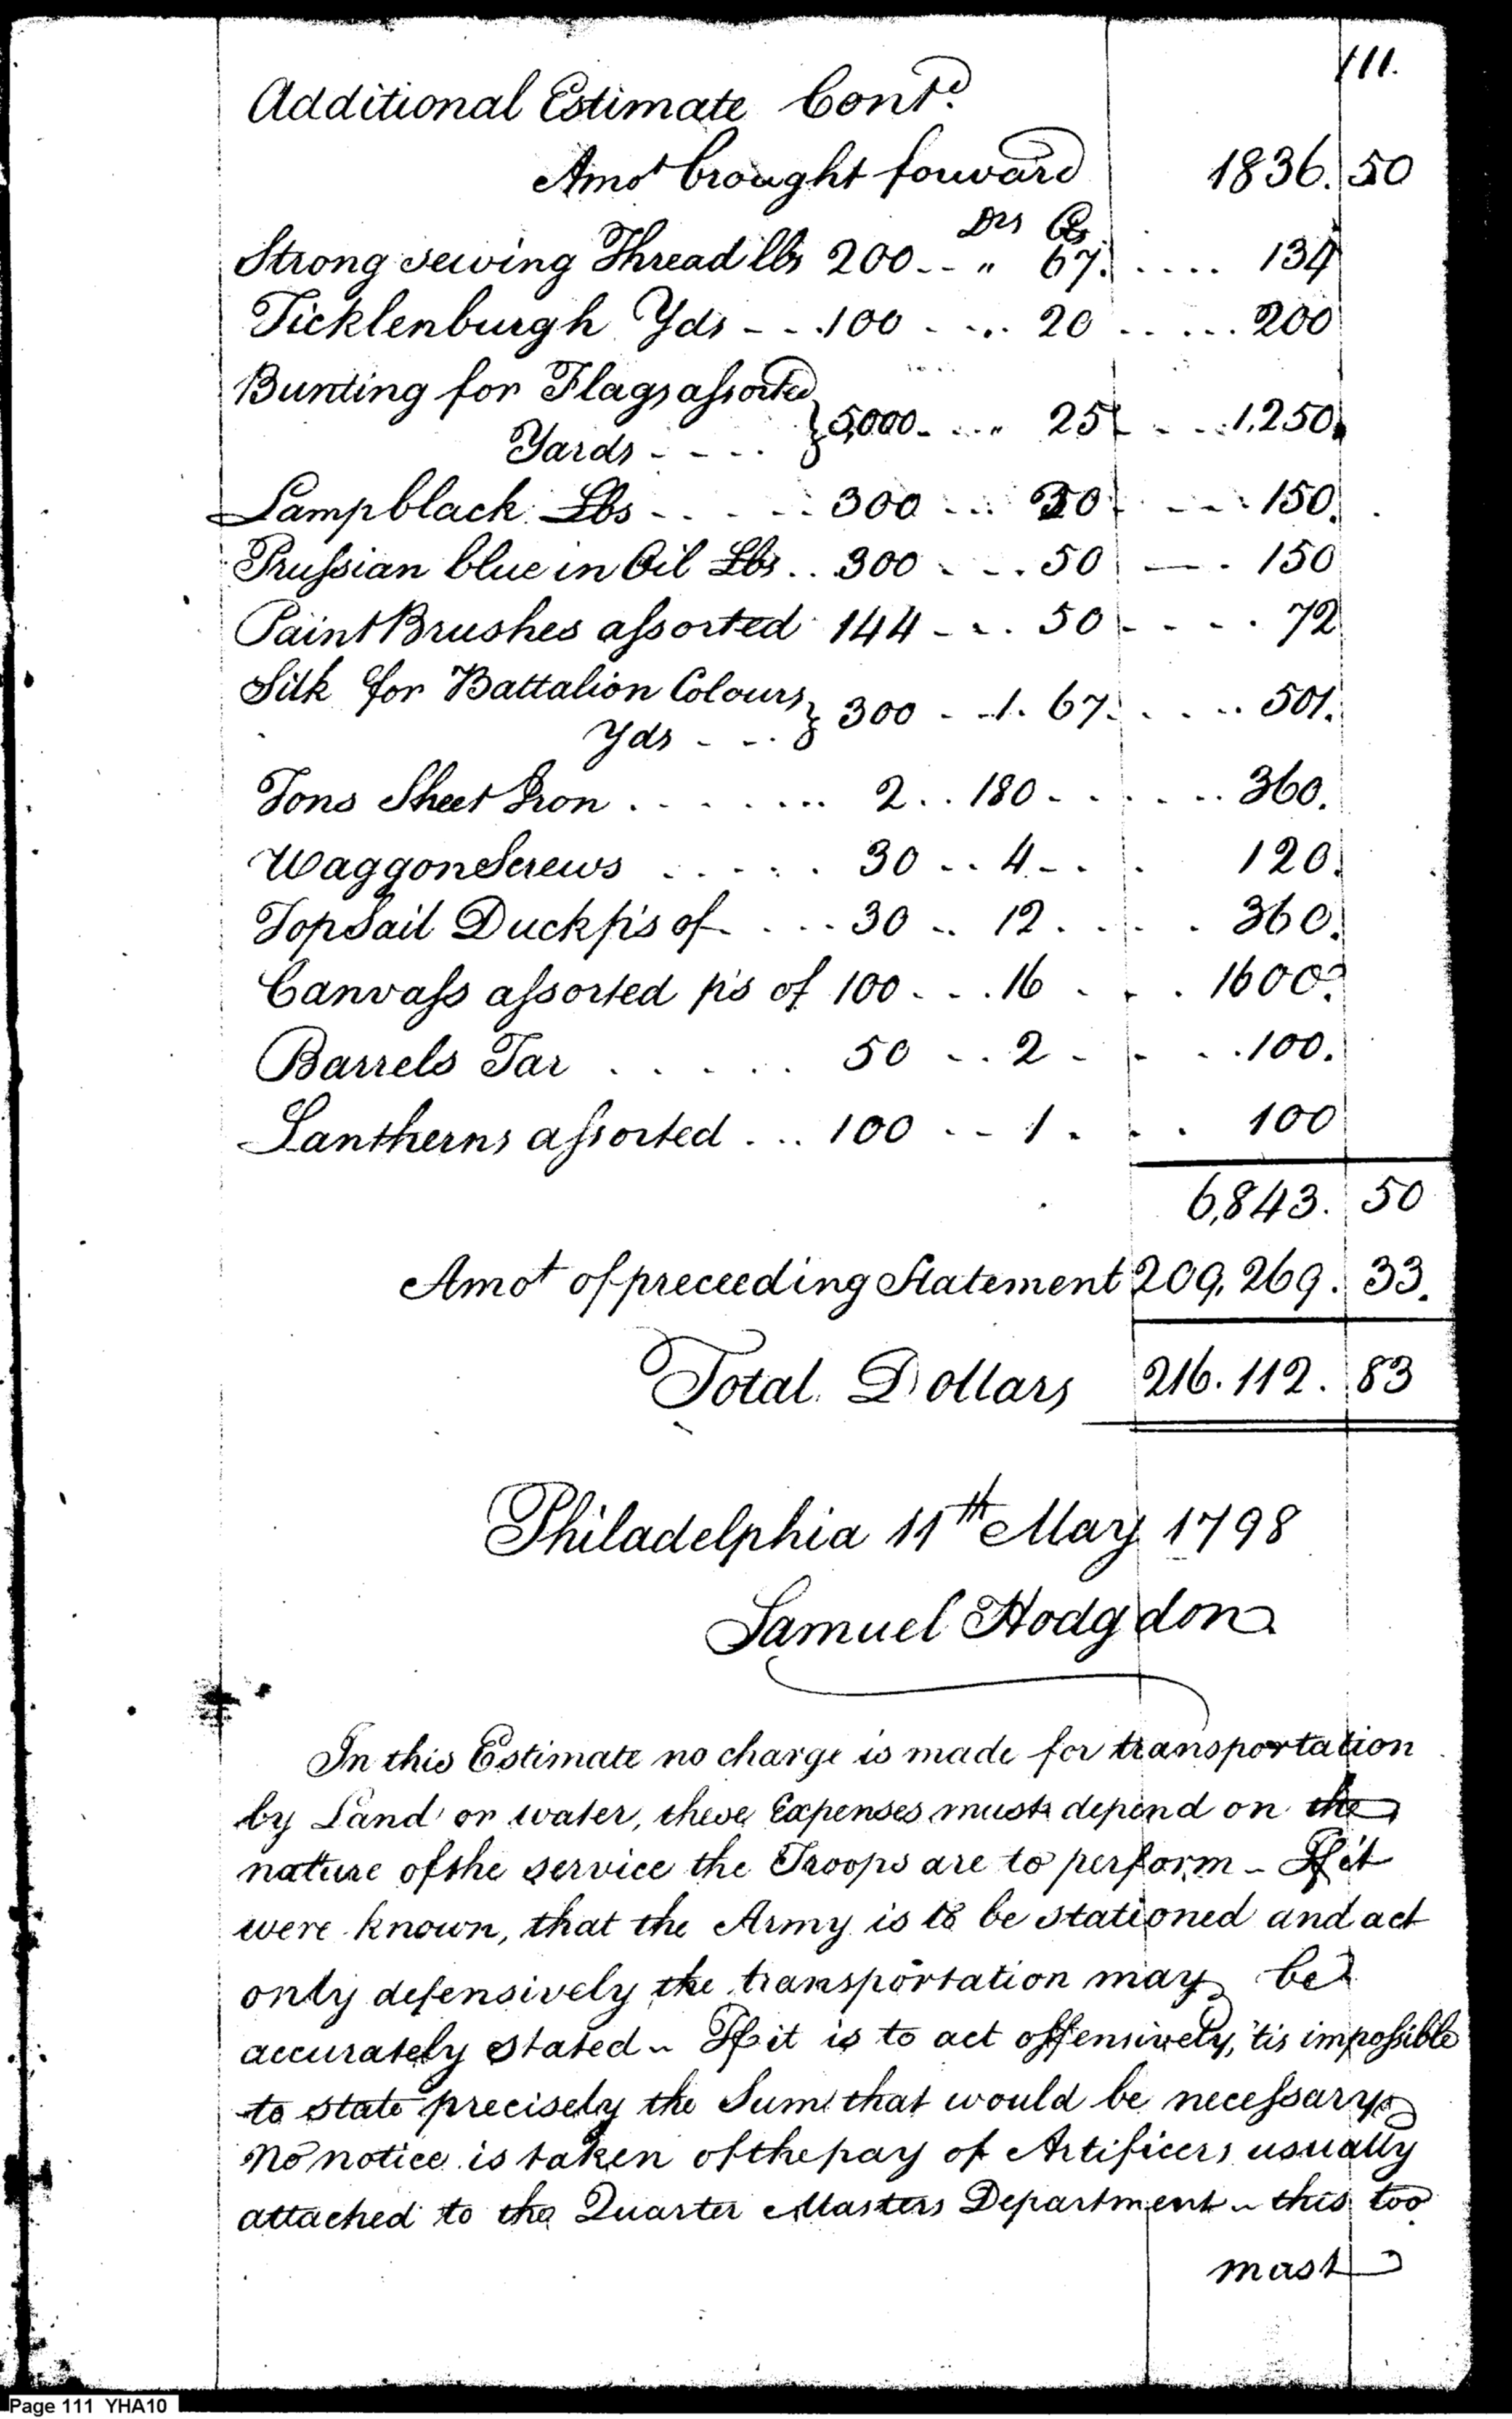 111.
Additional Estimate Contd.
Amot brought forward 1836. 50
Drs Cts
Strong sewing Thread lbs 200 -- " 67. .... 134
Ticklenburgh Yds - - .100 - ... 20 ..... 200
Bunting for Flags assorted
Yards - - - - } 5,000 - ... " 25 - - .. 1,250.
Lampblack Lbs - - - - .. 300 ... 50 - - - . 150.
Prussian blue in Oil Lbs .. 300 - - . 50 - - . 150
Paint Brushes assorted 144 - - . 50 - - - . 72
Silk for Battalion Colours
Yds - - . } 300 - - 1. 67. . - - .. 501.
Tons Sheet Iron . . . . . ... 2 .. 180 - . . - .. 360.
Waggon Screws . . - . . 30 - . 4 - . . 120.
Topsail Duck p's of - . . . 30 .. 12 . - . . 360.
Canvass assorted p's of 100 - . . 16 . . . 1600.
Barrels Tar . . . . . 50 - . 2 - - . . 100.
Lantherns assorted . .. 100 - - 1 . . . 100
6,843. 50
Amot of preceeding Statement 209,269. 33.
Total Dollars 216.112. 83
Philadelphia 11th May 1798
Samuel Hodgdon
In this Estimate no charge is made for transportation
by Land or water, these Expenses must depend on the
nature of the service the Troops are to perform - If it
were known, that the Army is to be stationed and act
only defensively the transportation may be
accurately stated - If it is to act offensively, 'tis impossible
to state precisely the Sum that would be necessary.
No notice is taken of the pay of Artificers usually
attached to the Quarter Masters Department - this too
must
Page 111 YHA10